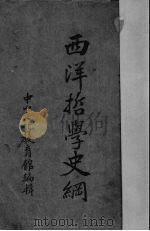 西洋哲學史綱
中
育館編輯